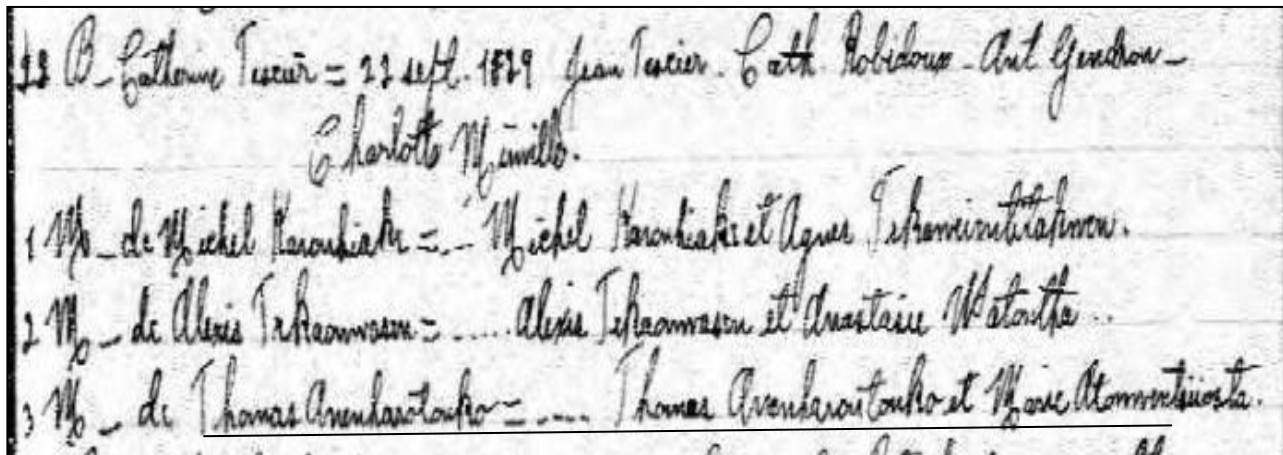 22 B - Catherine Tessier = 22 sept. 1829 Jean Tessier. Cath. Robidoux - Ant Gendron -
Charlotte Minville.
1 M - de Michel Karonhiake = .. - Michel Karonhiake et Agnes
2 M - de Alexis Tekaonwasen = - .... Alexis Tekaonwasen et Anastasie Watontha ..
3 M - de Thomas Anenharotonko = - .... Thomas Anenharontonko et Marie